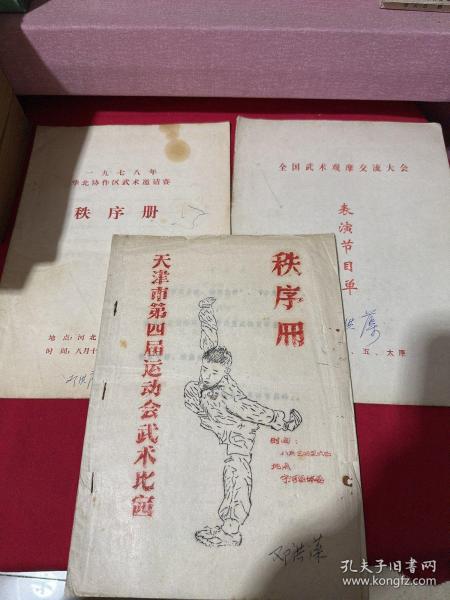 一九七八年
华北协作区武术邀请赛
秩序册
地点:河北
时间:八月十
全国武术观摩交流大会
表演节目单
五、太原
秩序册
天津市第四届运动会武术比赛
时间:
地点:
邓洪藻
孔夫子旧书网
www.kongfz.com